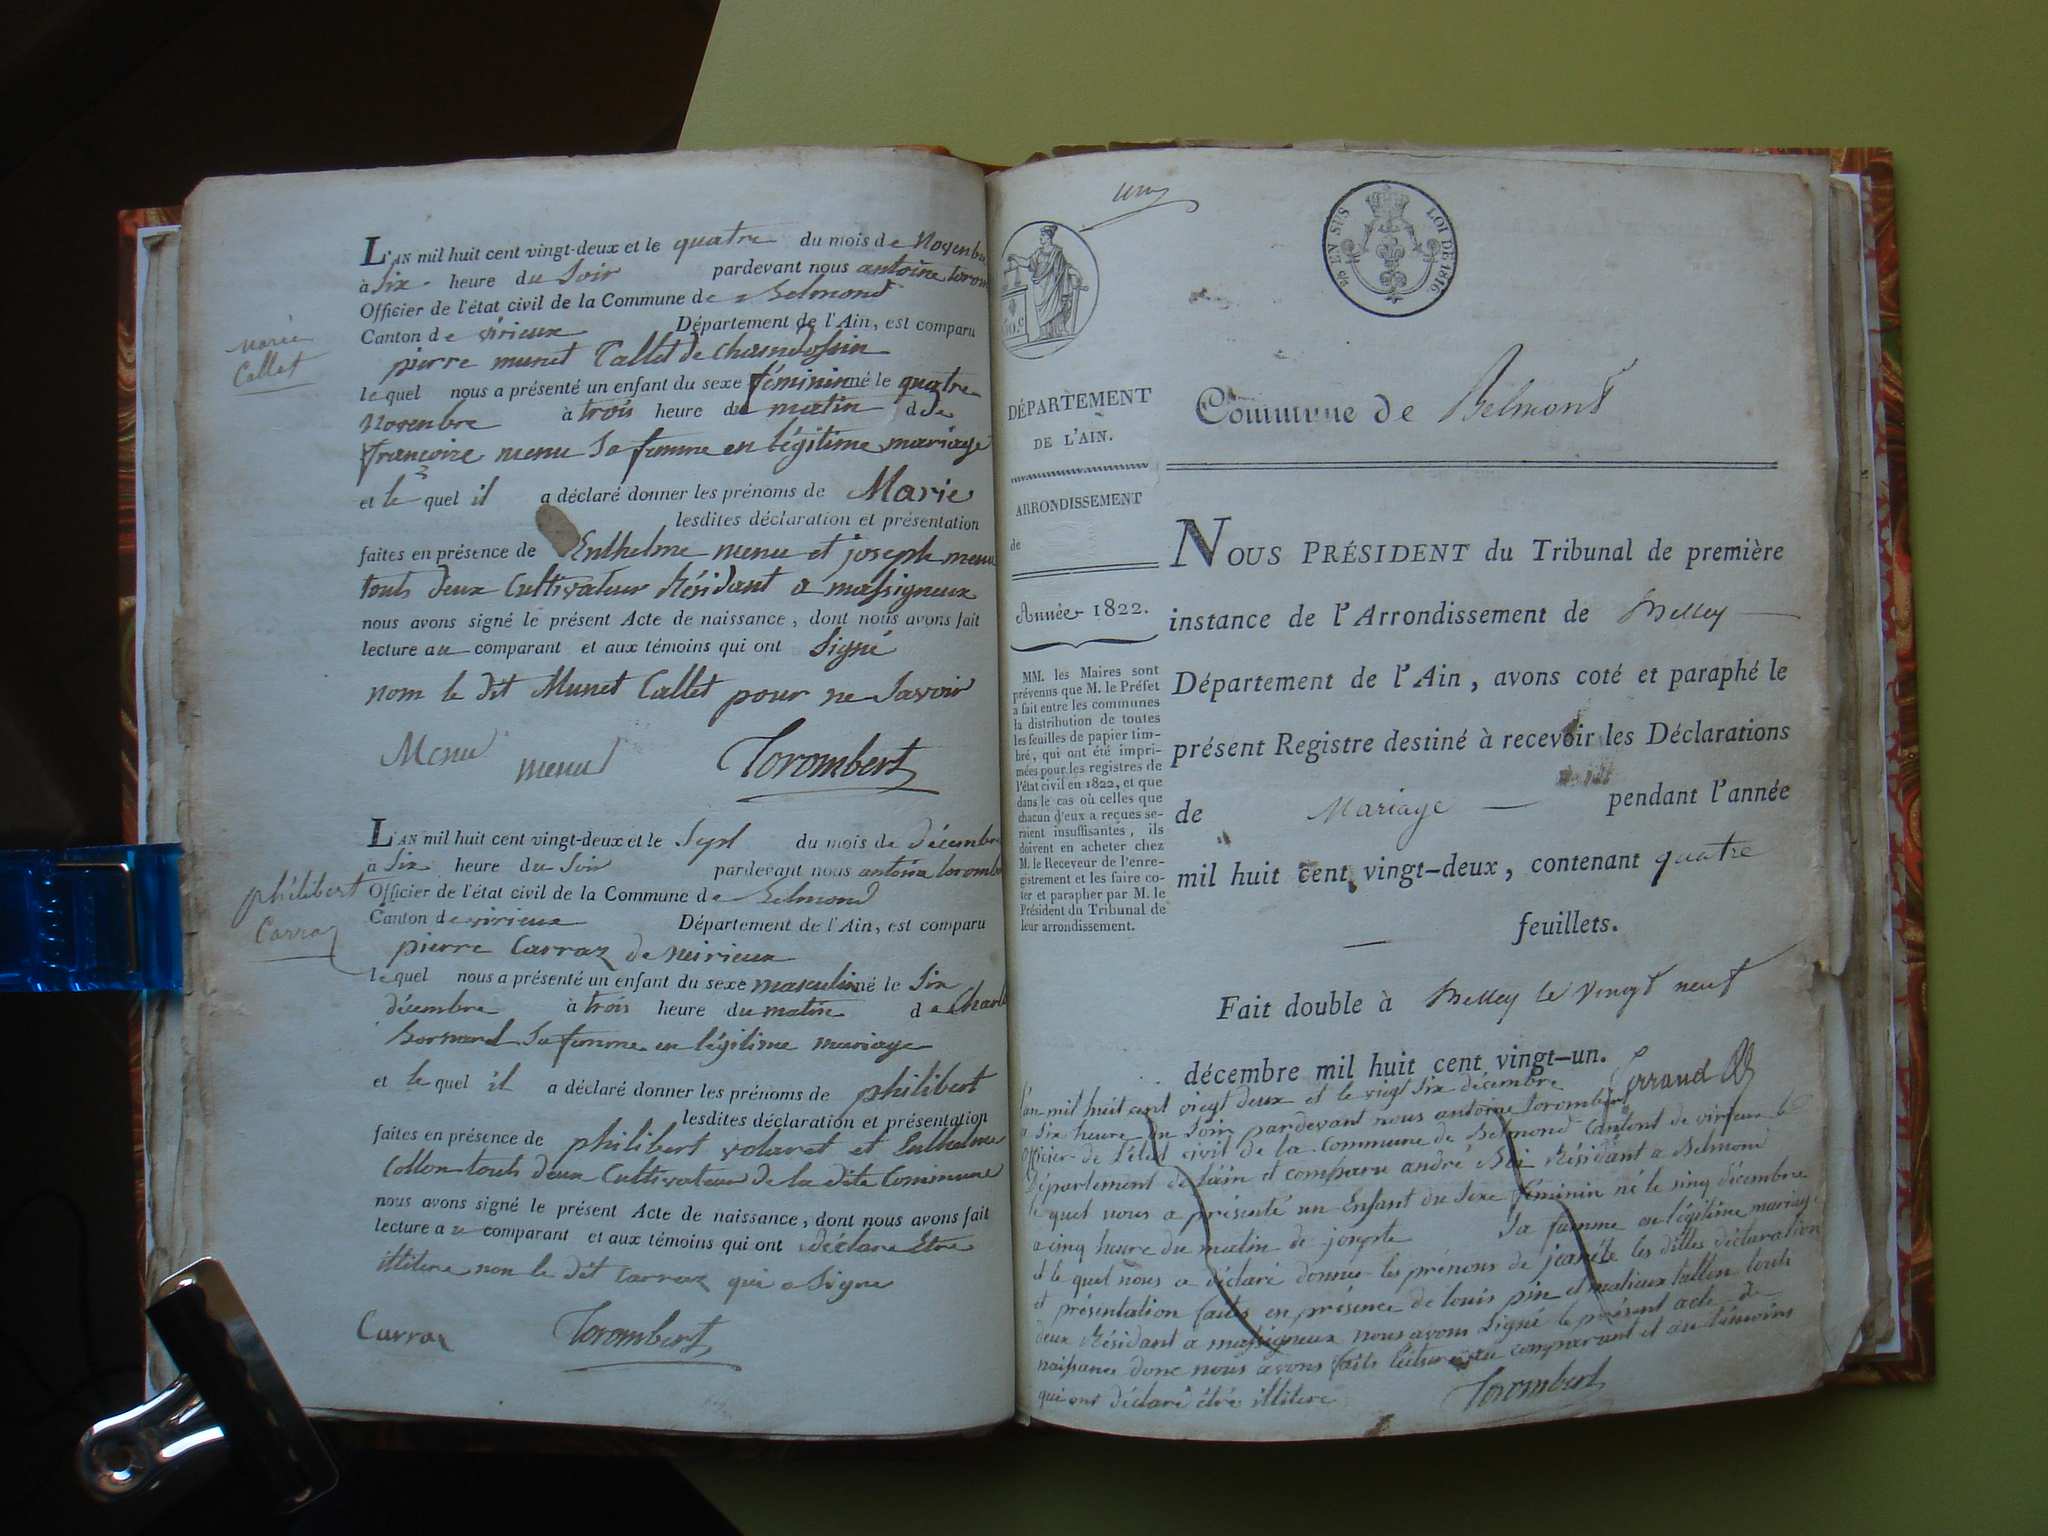 L'AN mil huit cent vingt-deux et le quatre du mois de Novenbre
à Six heure du Soir pardevant nous antoine torom
Officier de l'état civil de la Commune de Belmond
Canton de virieux Département de l'Ain, est comparu
pierre munet Callet de Chandossin
marie
Callet
le quel nous a présenté un enfant du sexe féminin né le quatre
Novenbre à trois heure du matin de
françoize menu Sa femme en légitime mariage
et le quel il a déclaré donner les prénoms de Marie
lesdites déclaration et présentation
faites en présence de Enthelme menu et joseph menu
touts deux Cultivateur Résidant a massigneux
nous avons signé le présent Acte de naissance, dont nous avons fait
lecture au comparant et aux témoins qui ont Signé
nom le dit Munet Callet pour ne Savoir
Menu menu Torombert
L'AN mil huit cent vingt-deux et le Sept du mois de décembre
à Six heure du Soir pardevant nous antoine torombe
Officier de l'état civil de la Commune de Belmond
Canton de virieux Département de l'Ain, est comparu
philibert
Carraz
pierre Carraz de neirieux
le quel nous a présenté un enfant du sexe masculin né le Six
décembre à trois heure du matin de Charl
bornard Sa femme en légitime mariage
et le quel il a déclaré donner les prénoms de philibert
lesdites déclaration et présentation
faites en présence de philibert volaret et Enthelme
Collon touts deux Cultivateur de la dite Commune
nous avons signé le présent Acte de naissance, dont nous avons fait
lecture au comparant et aux témoins qui ont déclare Etre
illitere non le dit Carraz qui a Signe
Carraz Torombert
EN SUS LOI DE 1816
DÉPARTEMENT
DE L'AIN.
ARRONDISSEMENT
de
Année 1822.
MM. les Maires sont
prévenus que M. le Préfet
a fait entre les communes
la distribution de toutes
les feuilles de papier tim-
bré, qui ont été impri-
mées pour les registres de
l'état civil en 1822, et que
dans le cas où celles que
chacun d'eux a reçues se-
raient insuffisantes, ils
doivent en acheter chez
M. le Receveur de l'enre-
gistrement et les faire co-
ter et parapher par M. le
Président du Tribunal de
leur arrondissement.
Commune de Belmont
NOUS PRÉSIDENT du Tribunal de première
instance de l'Arrondissement de Belley
Département de l'Ain, avons coté et paraphé le
présent Registre destiné à recevoir les Déclarations
de Mariage pendant l'année
mil huit cent vingt-deux, contenant quatre
feuillets.
Fait double à Belley le vingt neuf
décembre mil huit cent vingt-un.
l'an mil huit cent vingt deux et le vingt Six décembre
a Six heure du Soir pardevant nous antoine torombert
officier de l'état civil de la Commune de Belmond Cantont de virieux le
Département de l'ain et comparu andré Résidant a Belmond
le quel nous a présenté un Enfant du Sexe féminin né le sinq décembre
a cinq heure du matin de josepte Sa famme en légitime mariage
et le quel nous a déclaré donner les prénoms de les dittes déclaration
et présentation faites en présence de louis pin et matieux tallon touts
deux Résidant a massigneux nous avons Signé le présent acte de
naissance donc nous avons faits lecture au comparant et au témoins
qui ont déclaré être illitere Torombert